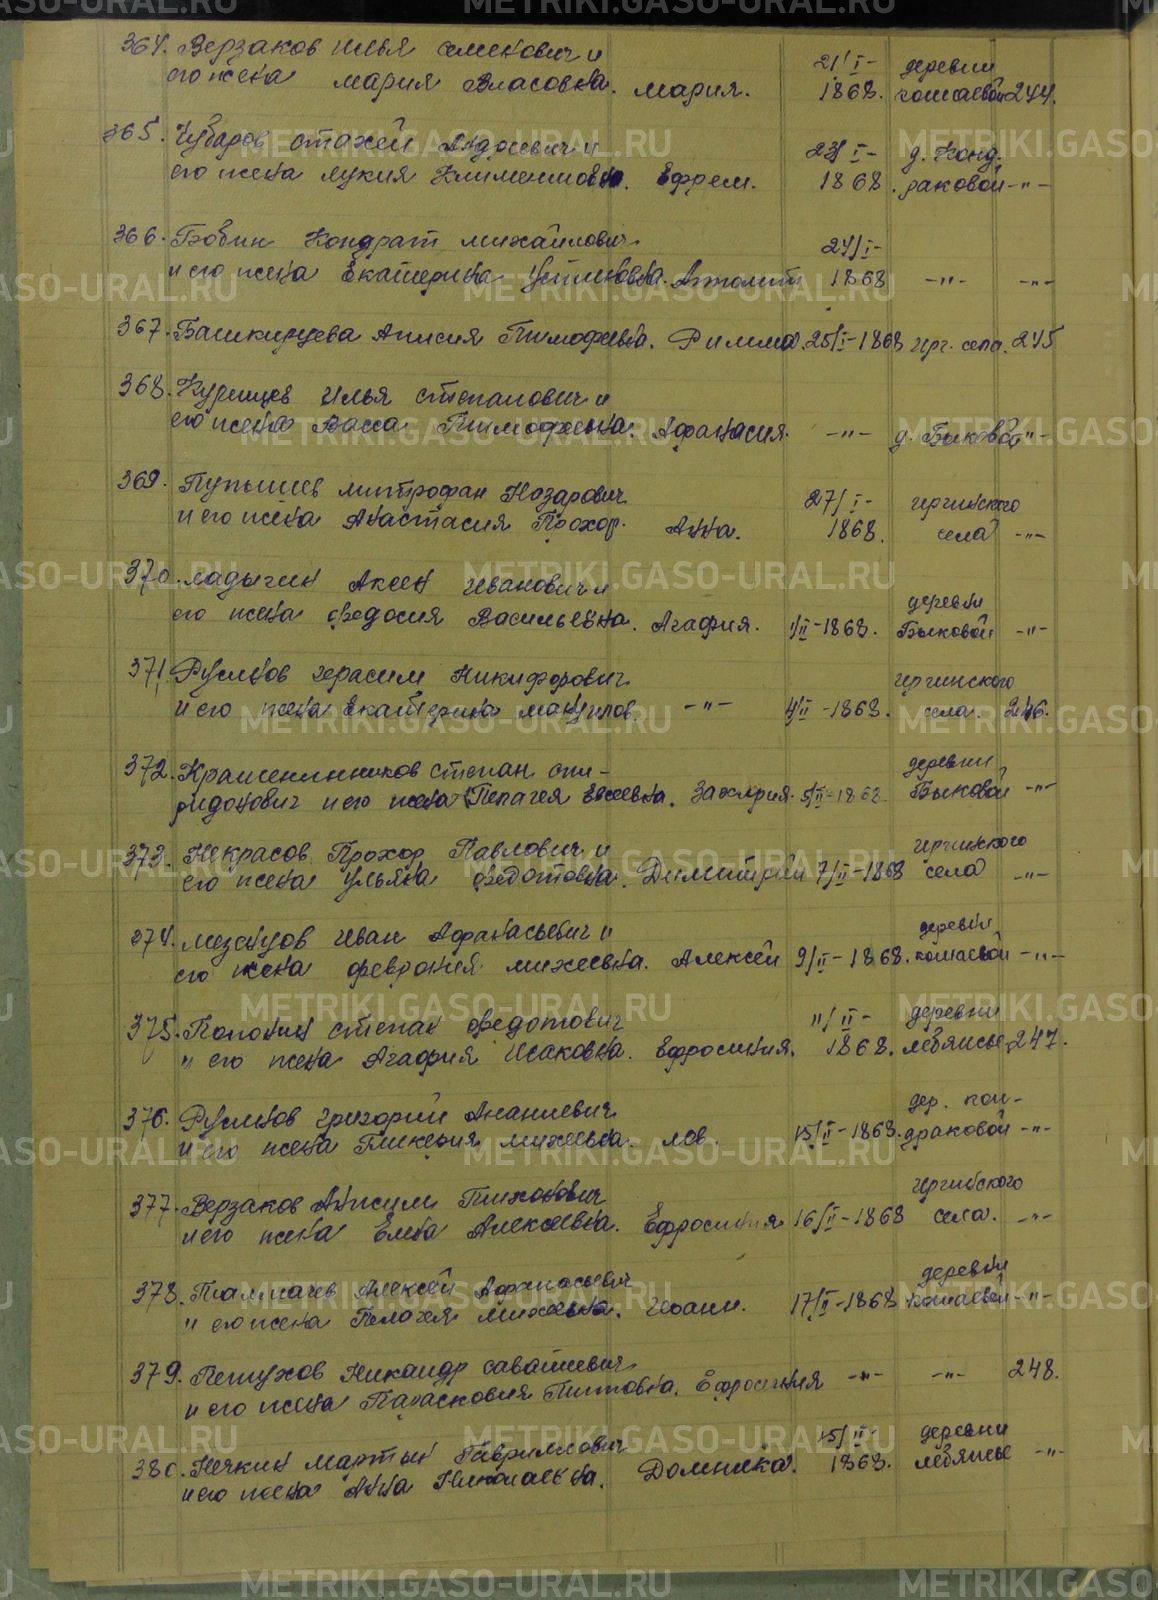 364. Верзаков Илья Семенович и 21/I- деревни
его жена Мария Власовна. Мария. 1868. Кошаевой 244.
365. Чубаров Стахей Андреевич и 23/I- д. Конд-
его жена Лукия Климентовна. Ефрем. 1868. раковой -"-
366. Бобин Кондрат Михайлович 24/I-
и его жена Екатерина Устиновна. 1868 -"- -"-
367. Башкирцева Анисия Тимофеевна. Римма. 25/I-1868 Ирг. села. 245
368. Илья Степанович и
его жена Васса Тимофеевна. Афанасия. -"- д. Быковой -"-
369. Пупышев Митрофан Назарович 27/I- Иргинского
и его жена Анастасия Прохор. Анна. 1868. села -"-
370. Ладыгин Аксен Иванович и деревни
его жена Федосия Васильевна. Агафия. 1/II-1868. Быковой -"-
371. Русинов Герасим Никифорович Иргинского
и его жена Екатерина Мануилов. -"- 4/II-1868. села. 246.
372. Крашенинников Степан Спи- деревни
ридонович и его жена Пелагея Евсеевна. Захария. 5/II-1868 Быковой -"-
373. Некрасов Прохор Павлович и Иргинского
его жена Ульяна Федотовна. Димитрий 7/II-1868 села -"-
374. Мезенцов Иван Афанасьевич и деревни
его жена Феврония Михеевна. Алексей 9/II-1868. Кошаевой -"-
375. Степан Федотович 11/II- деревни
и его жена Агафия Исаковна. Ефросиния. 1868. Лебяжье 247.
376. Русинов Григорий Ананиевич дер. Кон-
и его жена Гликерия Михеевна. Лев. 15/II-1868. драковой -"-
377. Верзаков Анисим Тихонович Иргинского
и его жена Елена Алексеевна. Ефросиния 16/II-1868 села. -"-
378. Толмачев Алексей Афанасьевич деревни
и его жена Пелагея Михеевна. Иоанн. 17/II-1868 Кошаевой -"-
379. Петухов Никандр Саватиевич
и его жена Параскович Титовна. Ефросиния -"- -"- 248.
380. Нечкин Мартын Гаврилович 15/II- деревни
и его жена Анна Николаевна. Домника. 1868. Лебяжье -"-